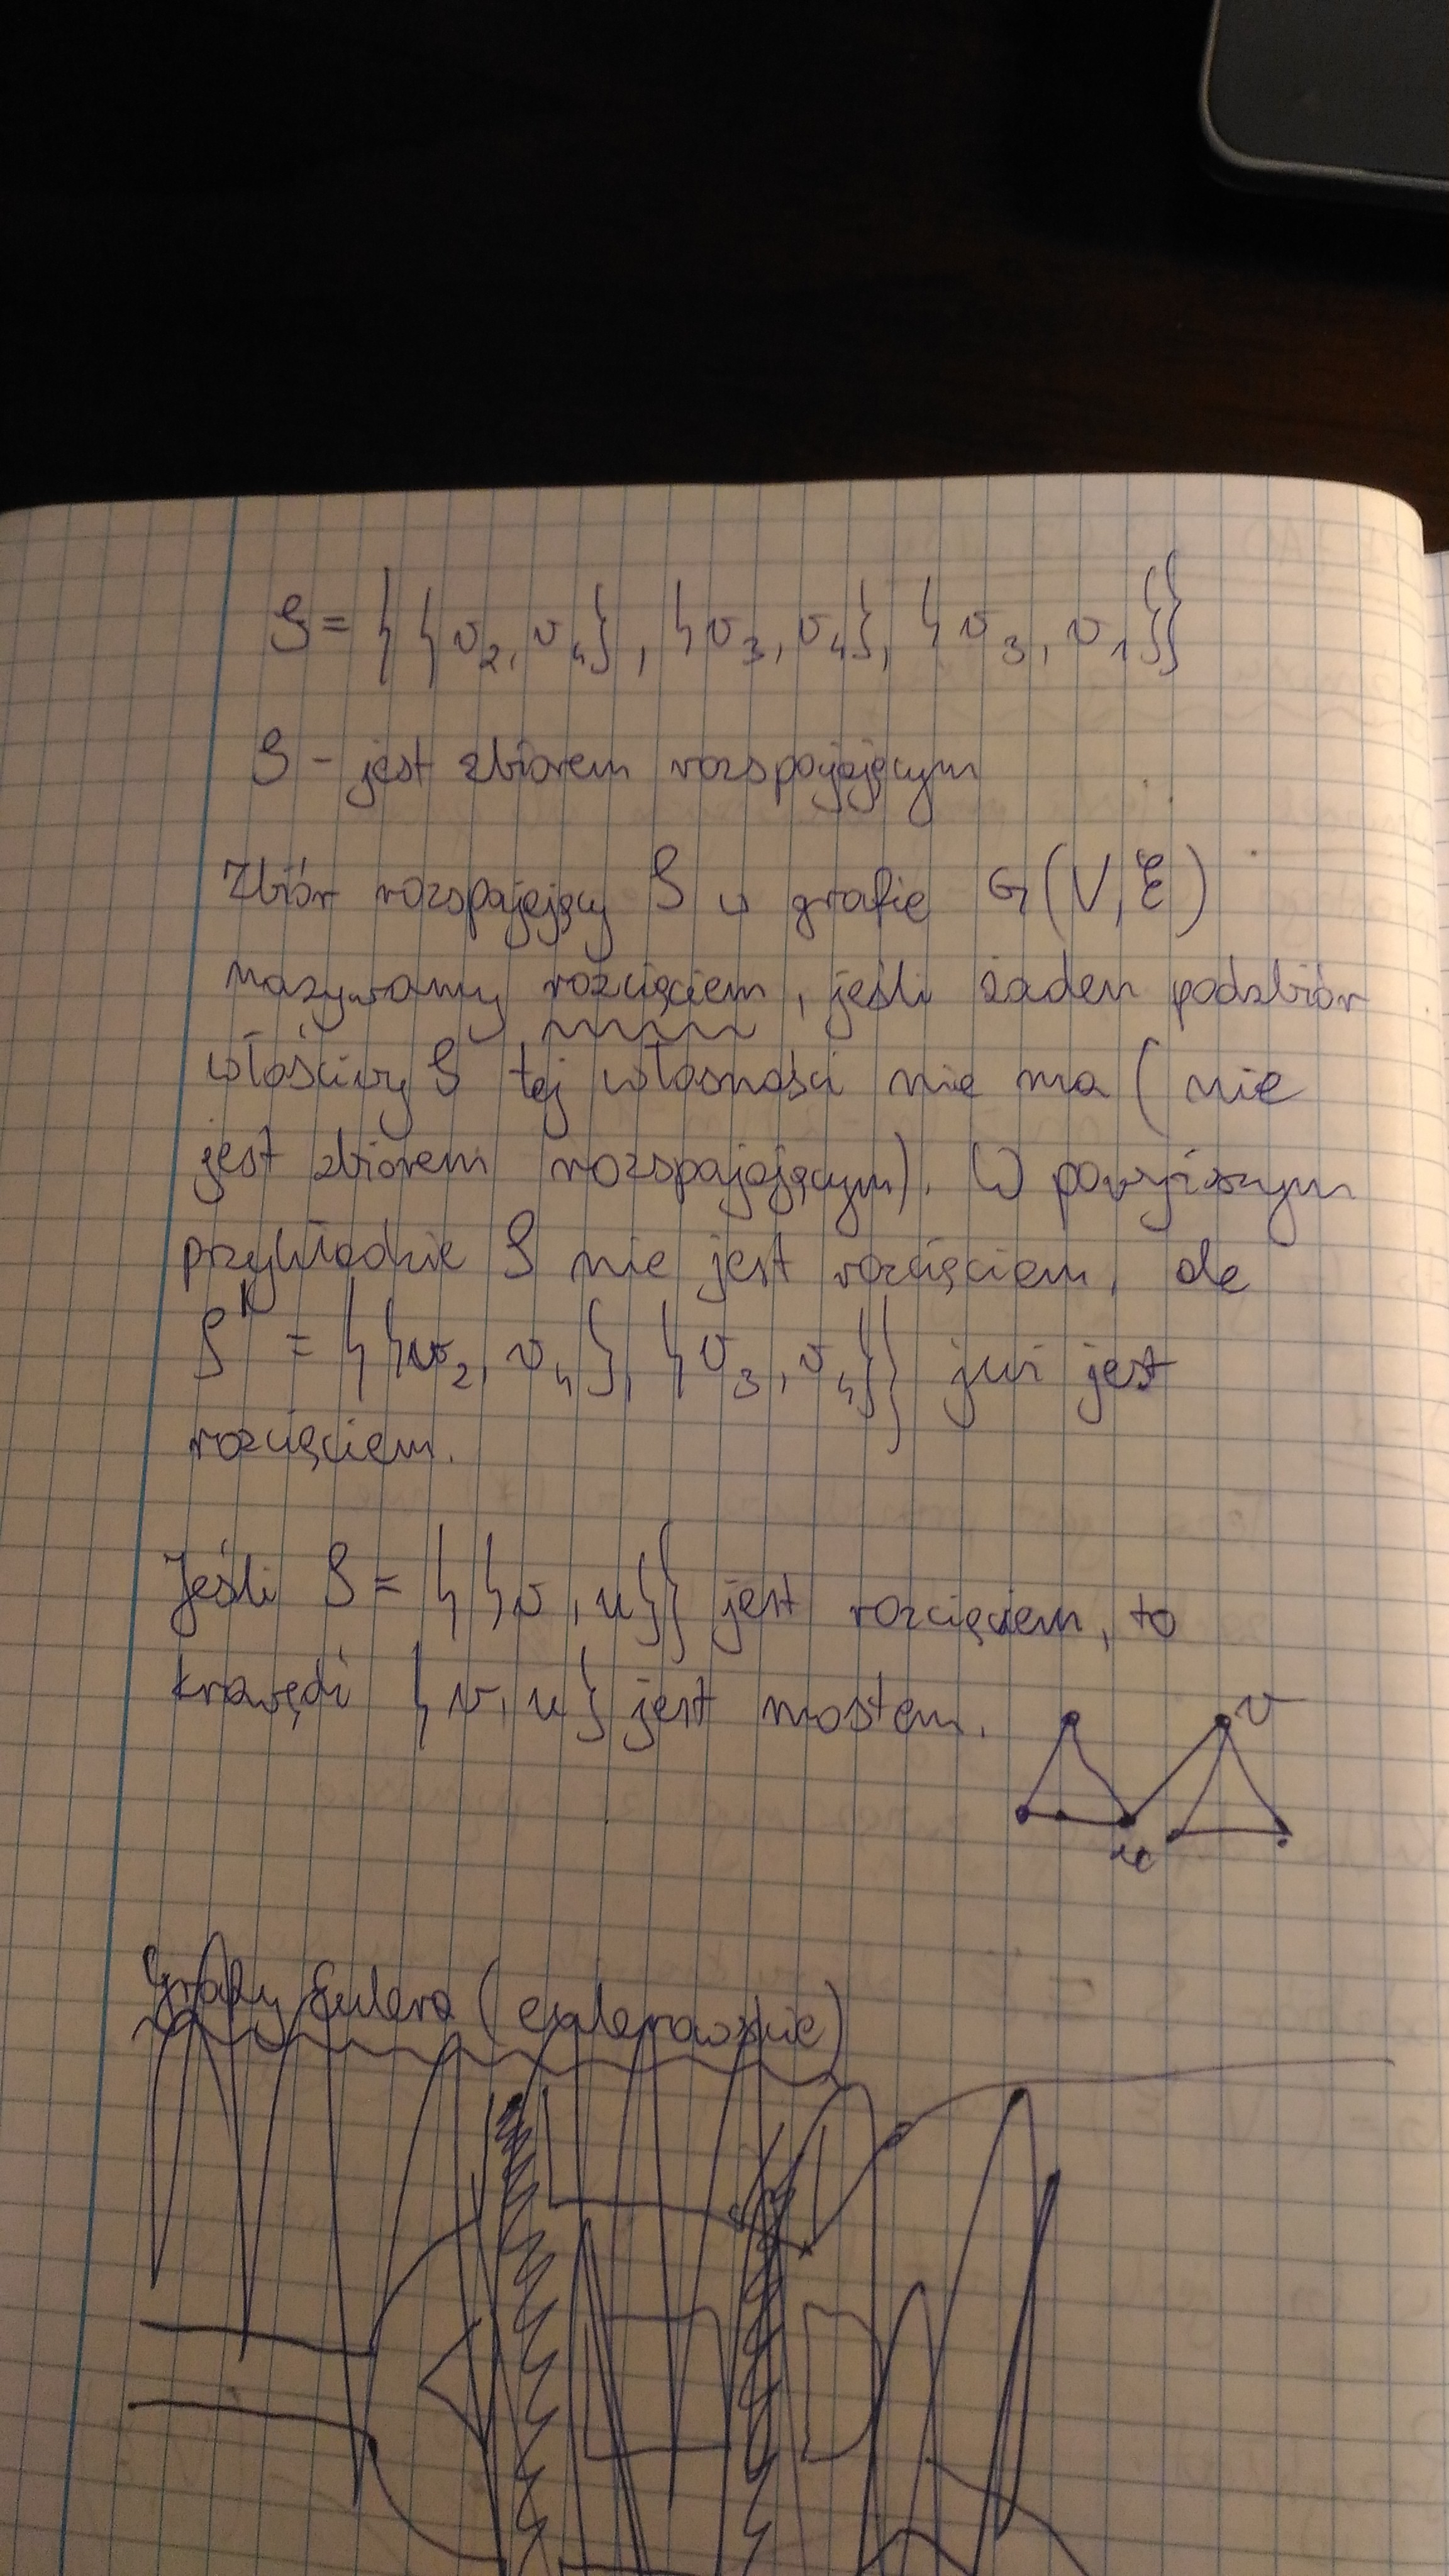 S = {{v₂, v₄}, {v₃, v₄}, {v₃, v₁}}
S - jest zbiorem rozspajającym
Zbiór rozspajający S w grafie G(V, E)
nazywamy rozcięciem, jeśli żaden podzbiór
właściwy S tej własności nie ma (nie
jest zbiorem rozspajającym). W powyższym
przykładzie S nie jest rozcięciem, ale
S* = {{v₂, v₄}, {v₃, v₄}} już jest
rozcięciem.
Jeśli S = {{v, u}} jest rozcięciem, to
krawędź {v, u} jest mostem.
v
u
Grafy Eulera (eulerowskie)